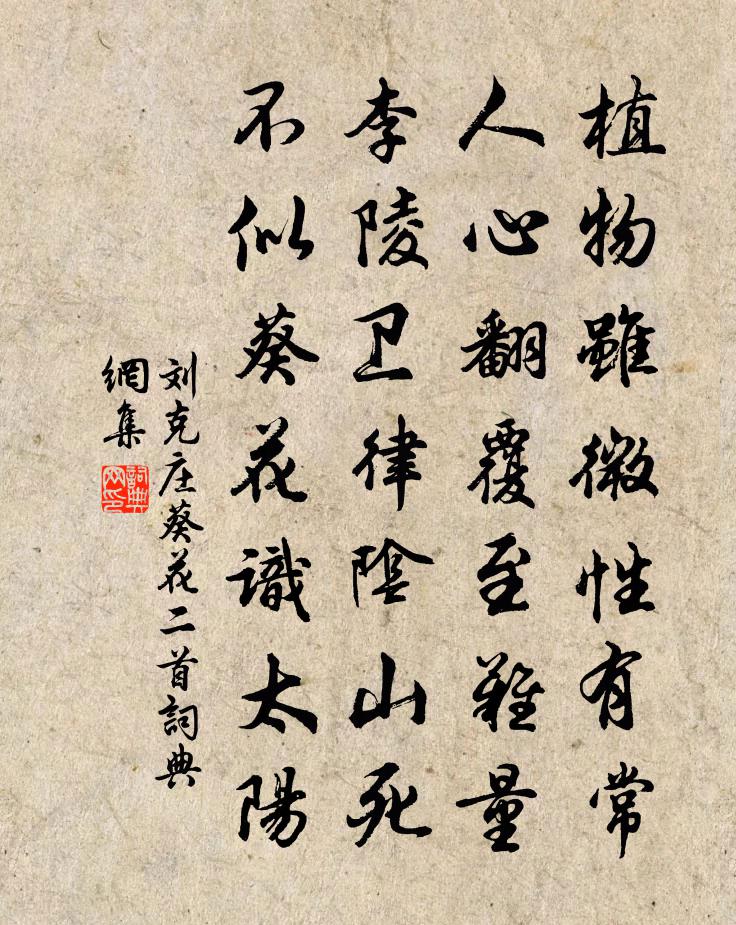 植物雖微性有常
人心翻覆至難量
李陵卫律陰山死
不似葵花識太陽
刘克庄葵花二首詞典
網集
詞典网印